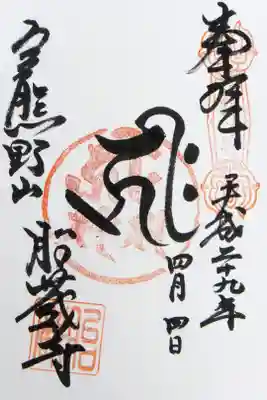 奉拝
平成二十九年
四月四日
今熊野山
胎蔵寺